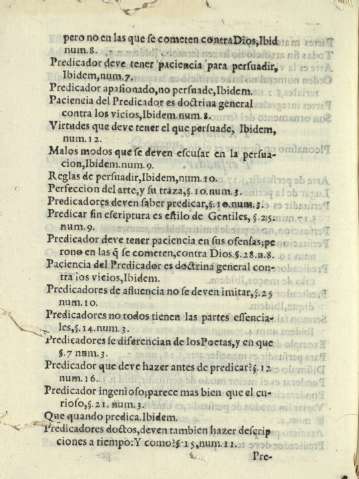 pero no en las que se cometen contra Dios, Ibid
num. 8.
Predicador deve tener paciencia para persuadir,
Ibidem, num. 7.
Predicador apasionado, no persuade, Ibidem.
Paciencia del Predicador es doctrina general
contra los vicios, Ibidem. num. 8.
Virtudes que deve tener el que persuade, Ibidem,
num. 12.
Malos modos que se deven escusar en la persua-
cion, Ibidem. num. 9.
Reglas de persuadir, Ibidem, num. 10.
Perfeccion del arte, y su traza, §. 10. num. 3.
Predicadores deven saber predicar, §. 10. num. 3.
Predicar sin escriptura es estilo de Gentiles, §. 25.
num. 9.
Predicador deve tener paciencia en sus ofensas; pe
ro no en las q̃ se cometen, contra Dios. §. 28. n. 8.
Paciencia del Predicador es doctrina general con-
tra los vicios, Ibidem.
Predicadores de afluencia no se deven imitar, §. 25
num. 10.
Predicadores no todos tienen las partes essencia-
les, §. 14. num. 3.
Predicadores se diferencian de los Poetas, y en que
§. 7 num. 3.
Predicador que deve hazer antes de predicar? §. 12
num. 16.
Predicador ingenioso; parece mas bien que el cu-
rioso, §. 21. num. 3.
Que quando predica. Ibidem.
Predicadores doctos, deven tambien hazer descrip
ciones a tiempo: Y como? §. 15, num. 11.
Pre-